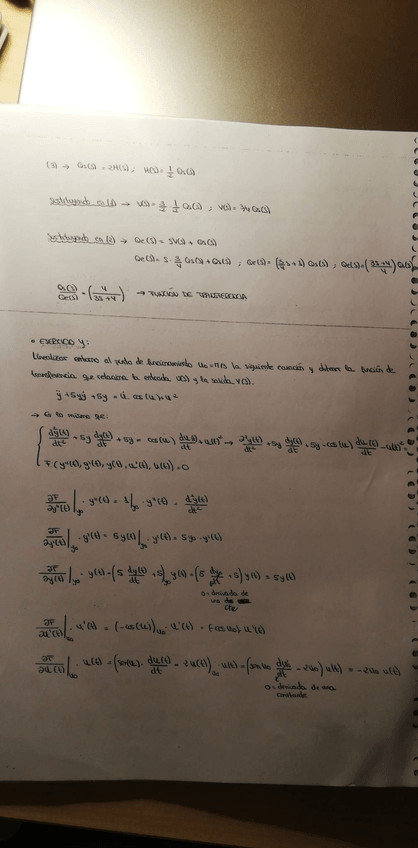 (3) → Qs(s) = 2H(s) ; H(s) = 1/2 Qs(s)
Sustituyendo en (1) → V(s) = 3/2 · 1/2 Qs(s) ; V(s) = 3/4 Qs(s)
Sustituyendo en (2) → Qe(s) = SV(s) + Qs(s)
Qe(s) = S · 3/4 Qs(s) + Qs(s) ; Qe(s) = (3/4 s + 1) Qs(s) ; Qe(s) = (3s+4/4) Qs(s)
Qs(s)/Qe(s) = (4/3s+4) → FUNCIÓN DE TRANSFERENCIA
• EJERCICIO 4:
Linealizar entorno al punto de funcionamiento U₀ = π/3 la siguiente ecuación y obtener la función de
transferencia que relaciona la entrada U(s) y la salida Y(s).
ÿ + 5yẏ + 5y = u̇ · cos(u) + u²
→ Es lo mismo que:
d²y(t)/dt² + 5y dy(t)/dt + 5y = cos(u) du(t)/dt + u(t)² → d²y(t)/dt² + 5y dy(t)/dt + 5y - cos(u) du(t)/dt - u(t)² =
F(y''(t), y'(t), y(t), u'(t), u(t)) = 0
∂F/∂y''(t)|y₀ · y''(t) = 1|y₀ · y''(t) = d²y(t)/dt²
∂F/∂y'(t)|y₀ · y'(t) = 5y(t)|y₀ · y'(t) = 5y₀ · y'(t)
∂F/∂y(t)|y₀ · y(t) = (5 dy(t)/dt + 5)y₀ y(t) = (5 dy₀/dt + 5) y(t) = 5y(t)
0 = derivada de
una
cte
∂F/∂u'(t)|u₀ · u'(t) = (-cos(u))u₀ · u'(t) = (-cos u₀) · u'(t)
∂F/∂u(t)|u₀ · u(t) = (sen(u) · du(t)/dt - 2u(t))u₀ · u(t) = (sen u₀ du₀/dt - 2u₀) u(t) = -2u₀ u(t)
0 = derivada de una
constante